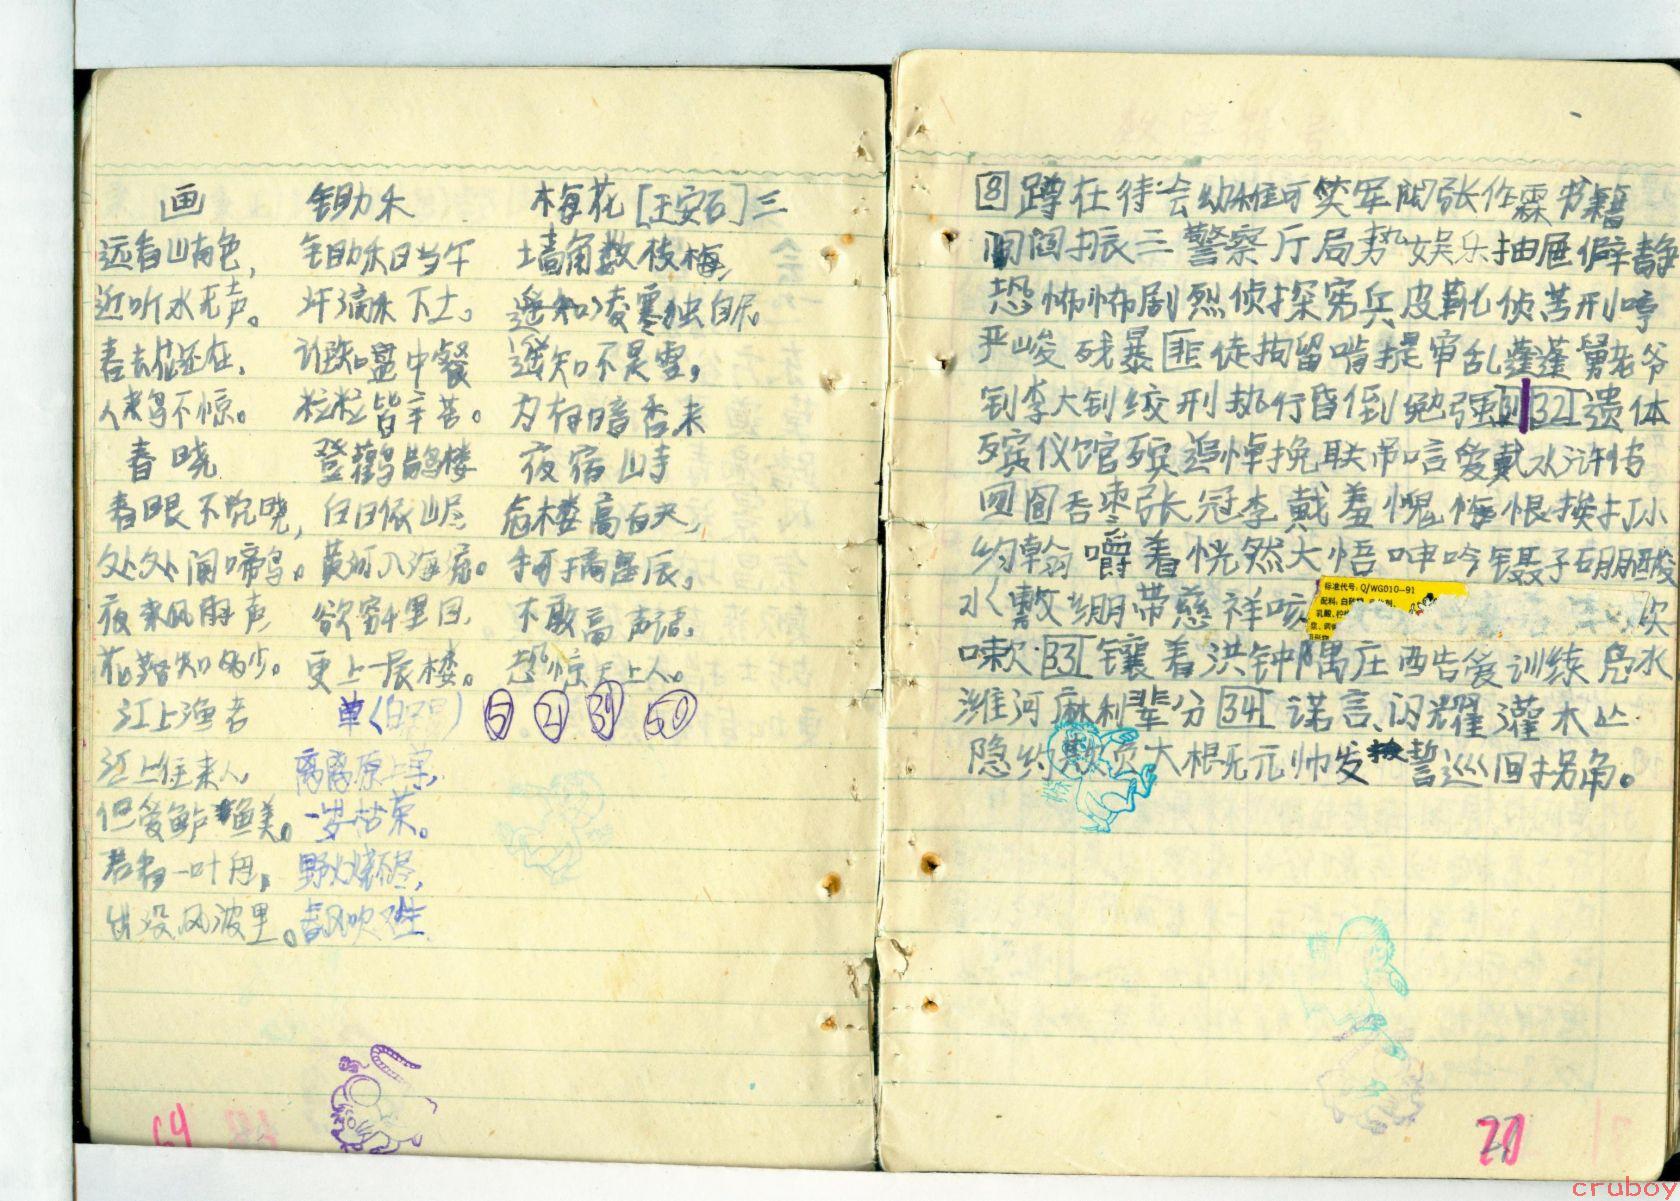 画 锄禾 梅花[王安石]三
远看山有色， 锄禾日当午 墙角数枝梅，
近听水无声。 汗滴禾下土。 遥知凌寒独自
春去花还在， 谁知盘中餐 遥知不是雪，
人来鸟不惊。 粒粒皆辛苦。 为有暗香来
春晓 登鹳鹊楼 夜宿山寺
春眠不觉晓， 白日依山尽 危楼高百尺，
处处闻啼鸟。 黄河入海流。 手可摘星辰，
夜来风雨声 欲穷千里目， 不敢高声语，
花落知多少。 更上一层楼。 恐惊天上人。
江上渔者 草(白居易) 5 21 39 50
江上往来人， 离离原上草，
但爱鲈鱼美。 一岁枯荣。
君看一叶舟， 野火烧不尽，
出没风波里。 春风吹又生
64
8 蹲在待会幼稚可笑军阀张作霖书籍
阅阎振三警察厅局势娱乐抽屉僻静
恐怖怖剧烈侦探宪兵皮靴侦苦刑哼
严峻残暴匪徒拘留啃提审乱蓬蓬舅老爷
钊李大钊绞刑执行昏倒勉强 32 遗体
殡仪馆殡追悼挽联吊唁爱戴水浒传
囫囵吞枣张冠李戴羞愧悔恨挨打小
约翰嚼着恍然大悟呻吟镊子硼酸
水敷绷带慈祥咳
标准代号：Q/WG010—91
嗽 33 镶着洪钟隅庄西告爱训练凫水
潍河麻利辈分 34 诺言、闪耀灌木丛
隐约数贡大根无元帅发誓巡回拐角。
cruboy